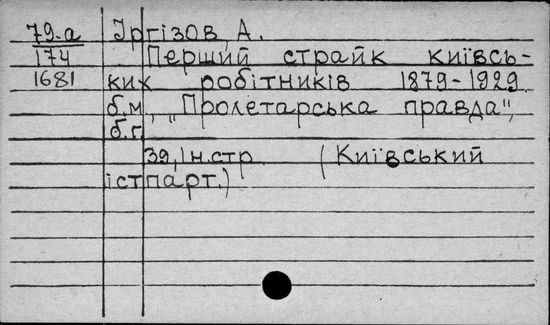 79-а Іргізов, А.
174 Перший страйк київсь-
1681 ких робітників 1879-1929.
б.м., „Пролетарська правда",
б.г.
39, Ін.стр. (Київський
істпарт.)